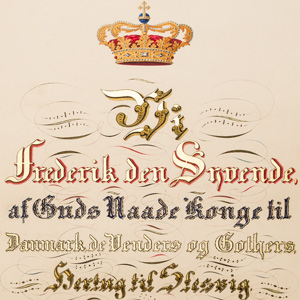 Vi
Frederik den Syvende,
af Guds Naade Konge til
Danmark, de Venders og Gothers,
Hertug til Slesvig